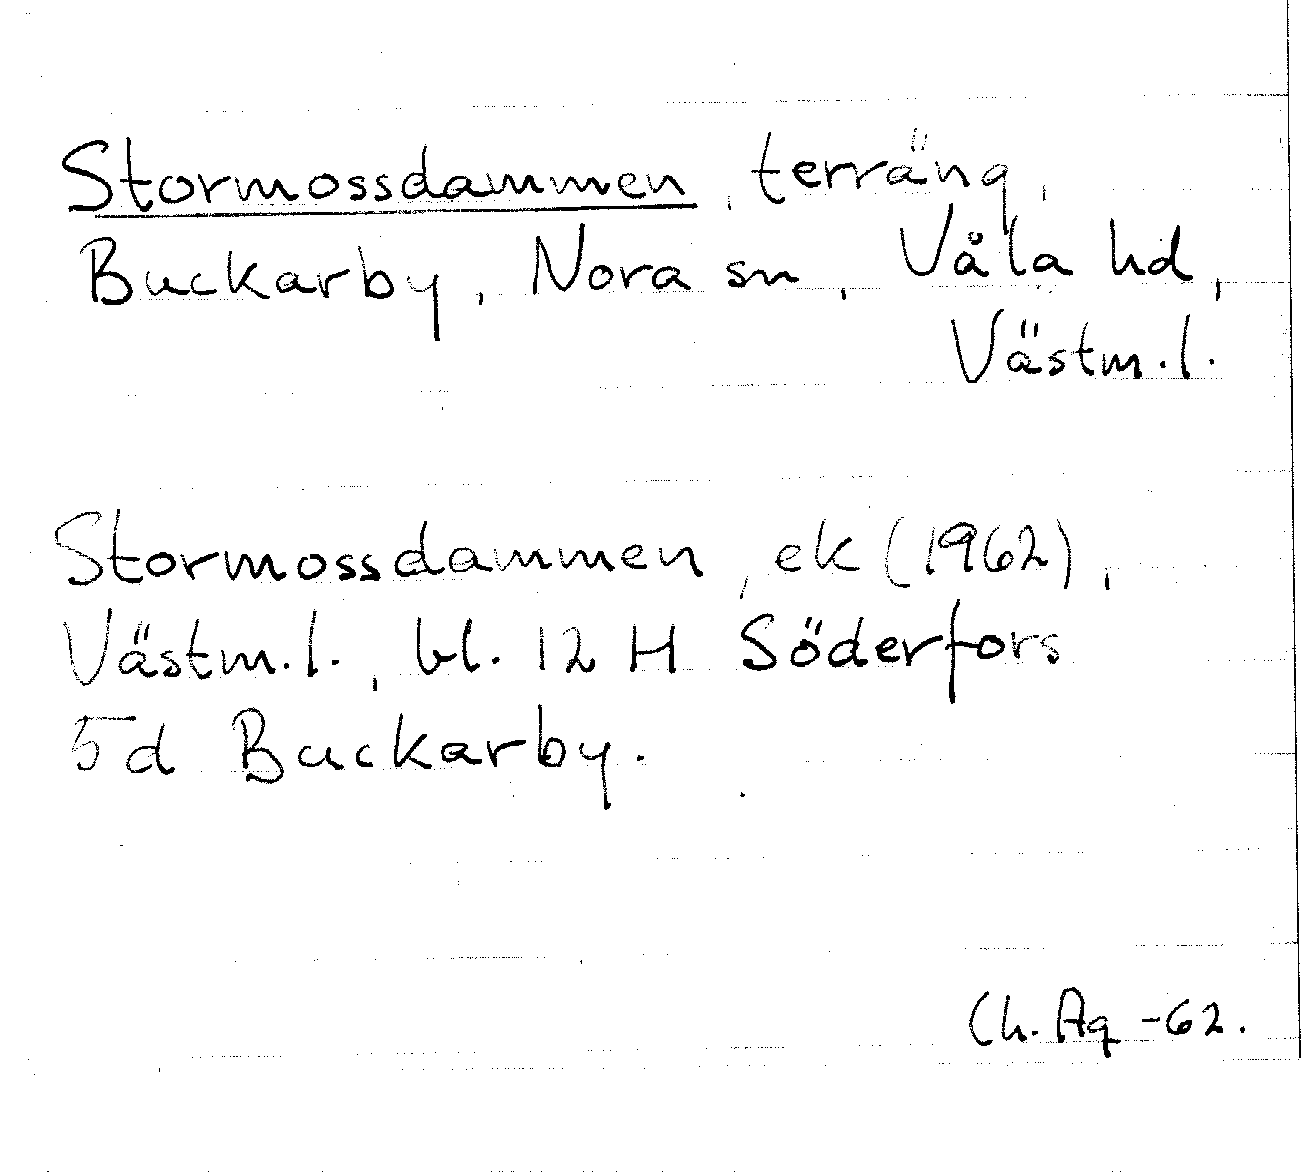 Stormossdammen, terräng,
Buckarby, Nora sn, Våla hd,
Västm.l.
Stormossdammen, ek (1962),
Västm.l., bl. 12 H Söderfors
5d Buckarby.
Ch. Ag -62.